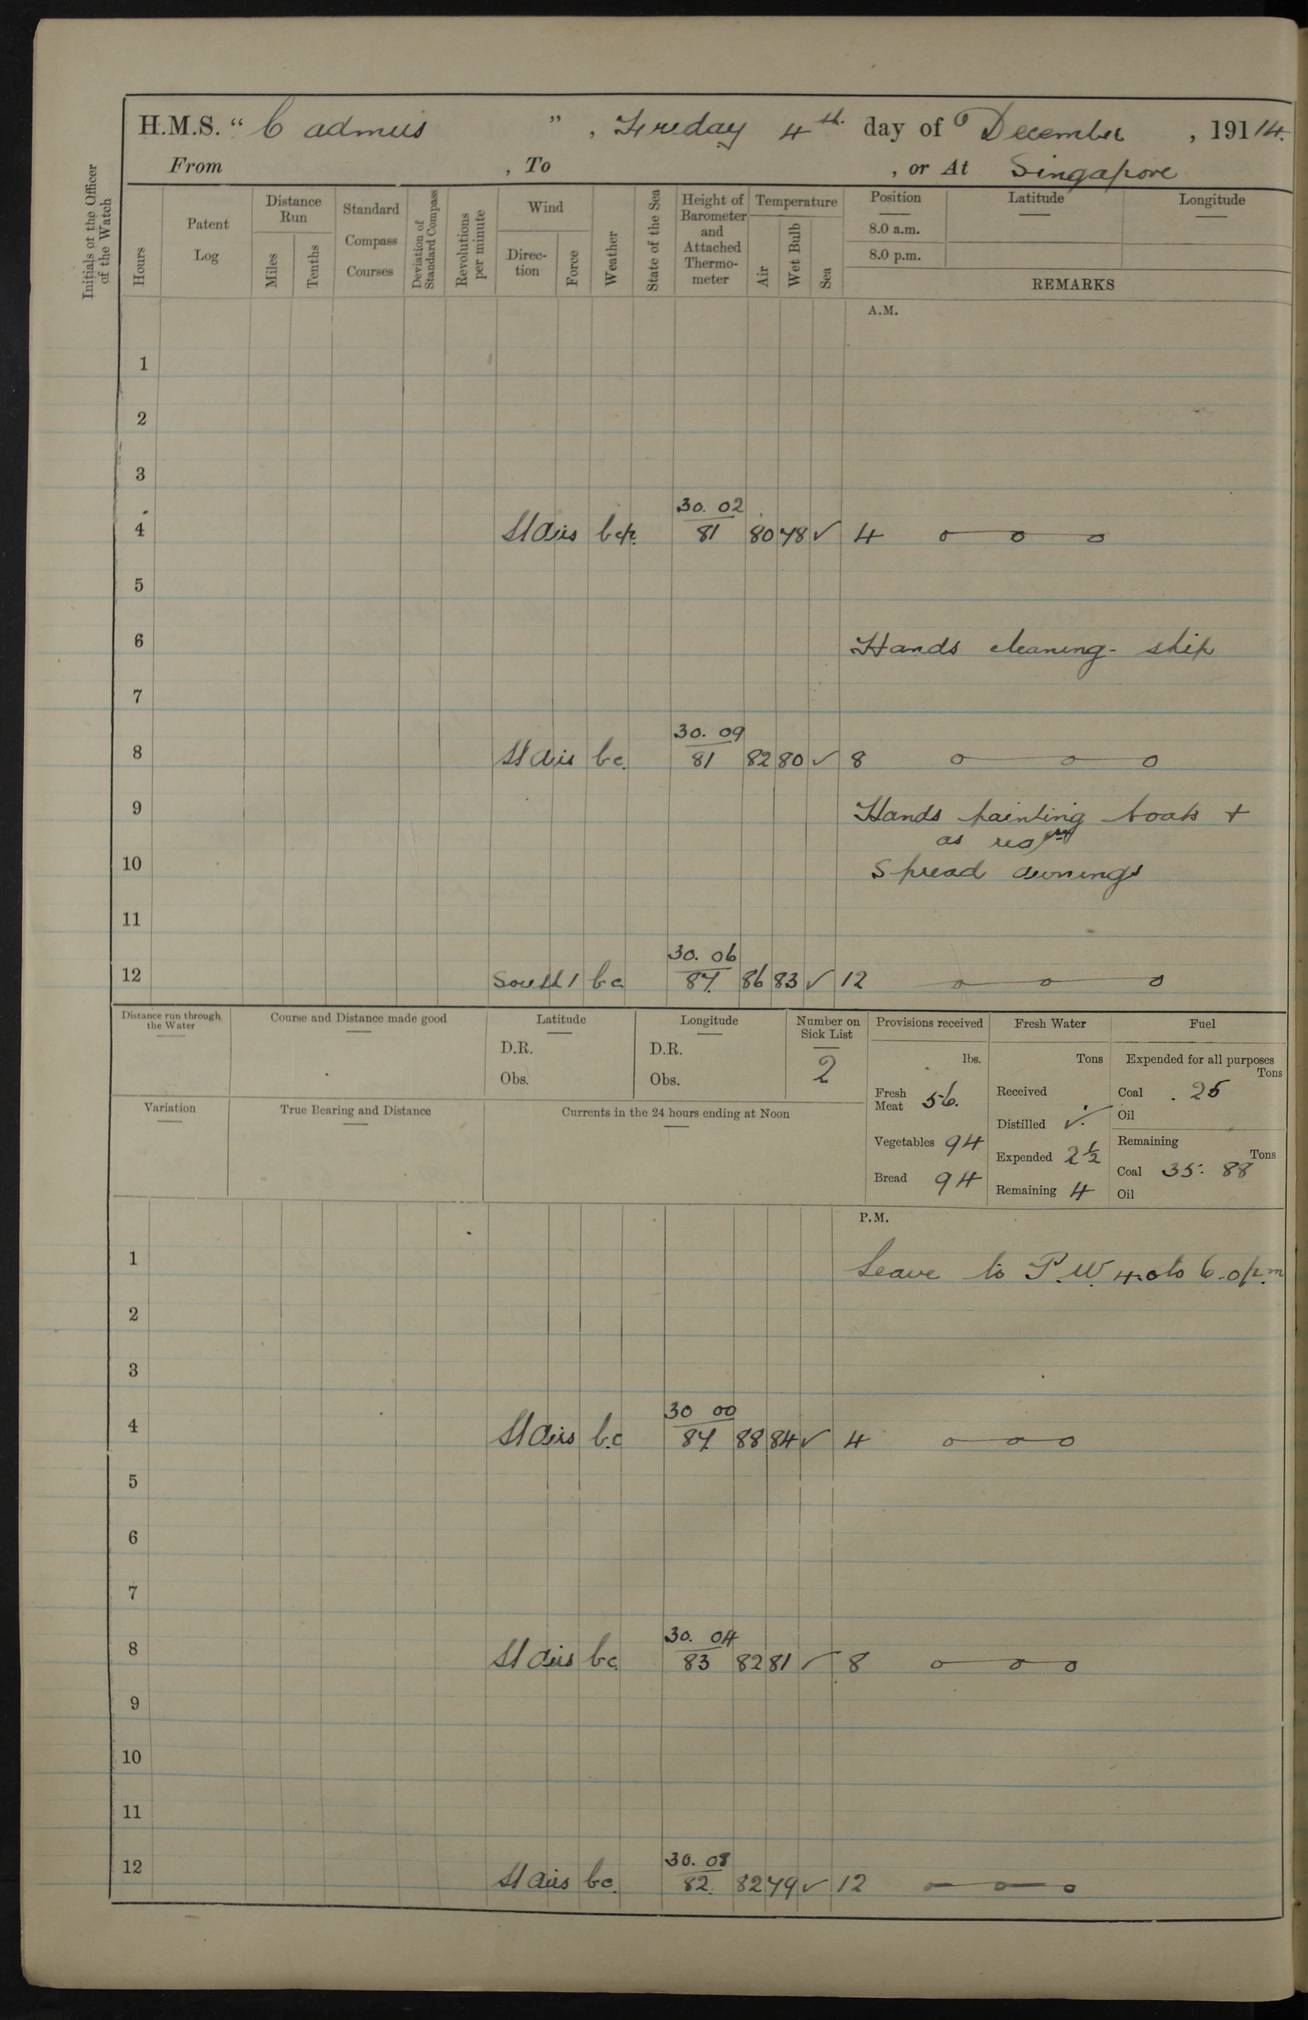 H.M.S. “ Cadmus ” , Friday 4th day of December , 19114.
From , To , or At Singapore
Initials of the Officer of the Watch
Hours
Patent Log
Distance Run
Miles
Tenths
Standard Compass Courses
Deviation of Standard Compass
Revolutions per minute
Wind
Direction
Force
Weather
State of the Sea
Height of Barometer and Attached Thermometer
Temperature
Air
Wet Bulb
Sea
Position
8.0 a.m.
8.0 p.m.
Latitude
Longitude
REMARKS
A.M.
1
2
3
30. 02
4 Airs bcp. 81 80 78 ✓ 4 o o o
5
6 Hands cleaning ship
7
30. 09
8 Airs bc. 81 82 80 ✓ 8 o o o
9 Hands painting boats +
as req
10 Spread awnings
11
30. 06
12 South 1 bc 87. 86 83 ✓ 12 o o o
Distance run through the Water
Course and Distance made good
Latitude
D.R.
Obs.
Longitude
D.R.
Obs.
Number on Sick List
2
Provisions received
lbs.
Fresh Meat 56.
Vegetables 94
Bread 94
Fresh Water
Tons
Received
Distilled ✓.
Expended 2½
Remaining 4
Fuel
Expended for all purposes
Tons
Coal . 25
Oil
Remaining
Tons
Coal 35. 88
Oil
Variation
True Bearing and Distance
Currents in the 24 hours ending at Noon
P.M.
1 Leave to P.W. 4.0 to 6.0 p.m
2
3
30 00
4 Airs b.c 87 88 84 ✓ 4 o o o
5
6
7
30. 04
8 Airs bc. 83 82 81 ✓ 8 o o o
9
10
11
30. 08
12 Airs bc. 82. 82 79 ✓ 12 o o o